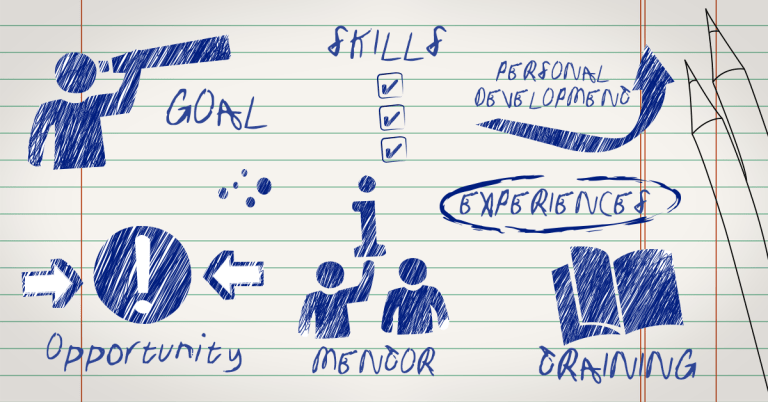 SKILLS
GOAL
PERSONAL
DEVELOPMENT
EXPERIENCES
Opportunity
MENTOR
TRAINING